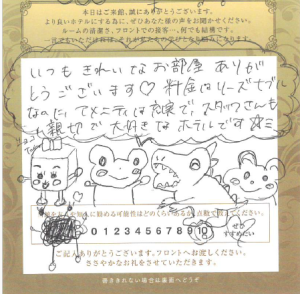 本日はご来館、誠にありがとうございます。
より良いホテルにする為に、ぜひあなた様の声をお聞かせください。
ルームの清潔さ、フロントでの接客…何でも結構です。
いつもきれいなお部屋ありが
とうございます♡ 料金はリーズナブル
なのに、アメニティは充実で、スタッフさんも
親切で大好きなホテルです
0 1 2 3 4 5 6 7 8 9 10
ご記入ありがとうございます。フロントへお渡しください。
ささやかなお礼をさせていただきます。
書ききれない場合は裏面へどうぞ